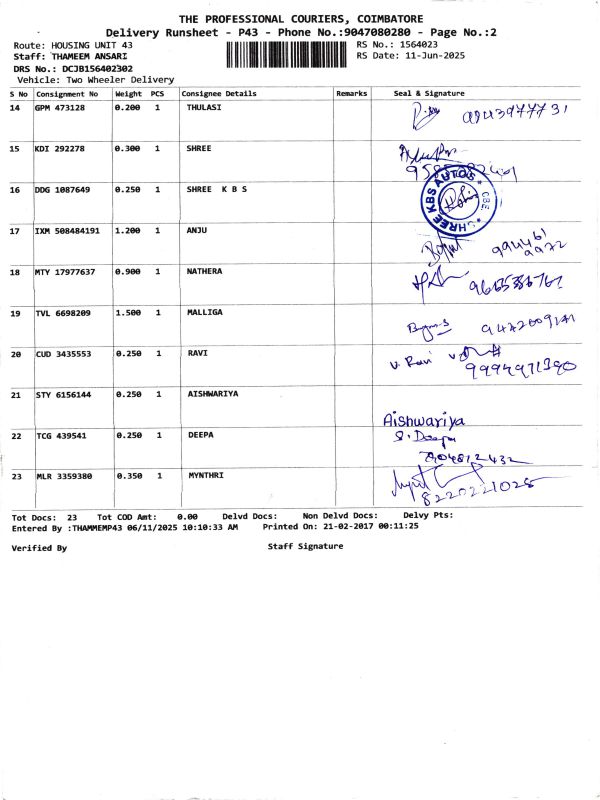 THE PROFESSIONAL COURIERS, COIMBATORE
Delivery Runsheet - P43 - Phone No.:9047080280 - Page No.:2
Route: HOUSING UNIT 43 RS No.: 1564023
Staff: THAMEEM ANSARI RS Date: 11-Jun-2025
DRS No.: DCJB156402302
Vehicle: Two Wheeler Delivery
S No Consignment No Weight PCS Consignee Details Remarks Seal & Signature
14 GPM 473128 0.200 1 THULASI
15 KDI 292278 0.300 1 SHREE
16 DDG 1087649 0.250 1 SHREE K B S
SHREE KBS AUTOS CBE
17 IXM 508484191 1.200 1 ANJU
994461
9972
18 MTY 17977637 0.900 1 NATHERA
19 TVL 6698209 1.500 1 MALLIGA
20 CUD 3435553 0.250 1 RAVI
V. Ravi
9994971390
21 STY 6156144 0.250 1 AISHWARIYA
Aishwariya
22 TCG 439541 0.250 1 DEEPA
S. Deepa
23 MLR 3359380 0.350 1 MYNTHRI
8220221025
Tot Docs: 23 Tot COD Amt: 0.00 Delvd Docs: Non Delvd Docs: Delvy Pts:
Entered By :THAMMEMP43 06/11/2025 10:10:33 AM Printed On: 21-02-2017 00:11:25
Verified By Staff Signature